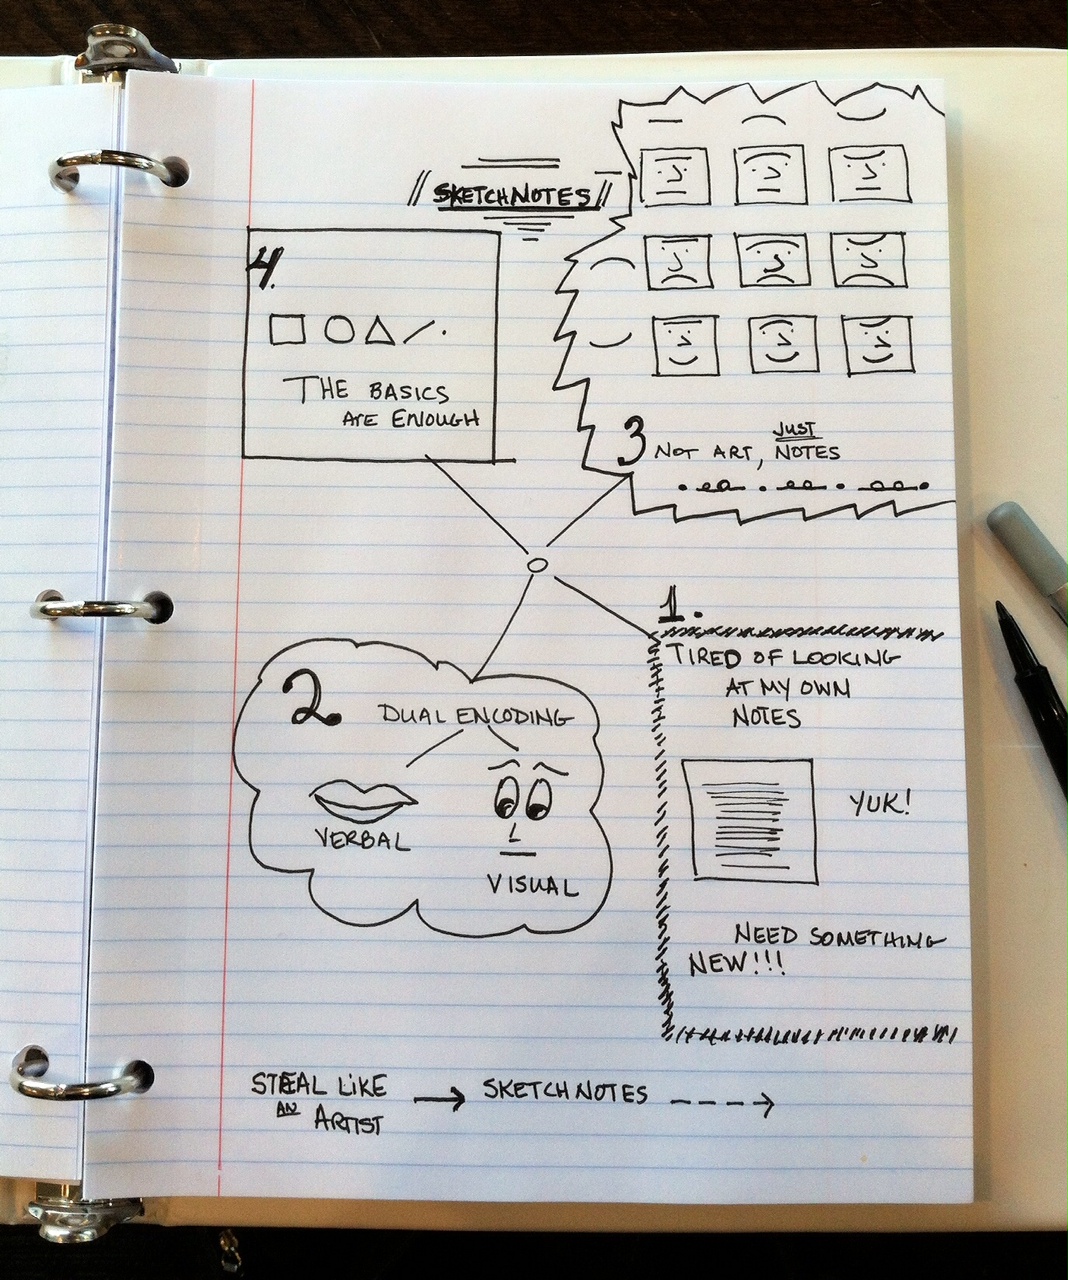 SKETCHNOTES
4.
THE BASICS
ARE ENOUGH
3 NOT ART, JUST NOTES
1.
TIRED OF LOOKING
AT MY OWN
NOTES
YUK!
NEED SOMETHING
NEW!!!
2. DUAL ENCODING
VERBAL
VISUAL
STEAL LIKE
AN ARTIST
SKETCHNOTES